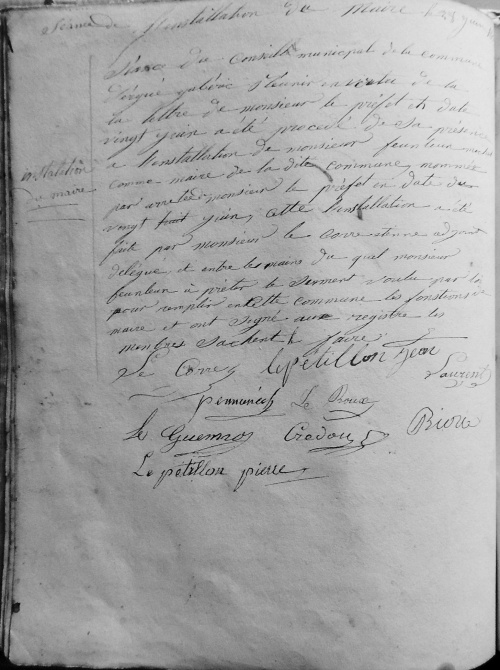 Séance de l'installation du maire le 28 juin
Séance du Conseil municipale de la commune
d'ergué gabéric Réunir en vertu de la
la lettre de monsieur le préfet en date
vingt juin a été procédé de Sa présence
a l'installation de monsieur feunteun
comme maire de la dite Commune, nommée
par arreté monsieur le préfet en date du
vingt huit juin, Cette l'installation a été
fait par monsieur le Corre etienne adjoint
délégué et entre les mains du quel monsieur
feunteun à prêter le Serment voulu par la loi
pour remplir en Cette commune les fonctions de
maire et ont Signé au registre les
membres Sachent faire
installation
du maire
Le Corre le pétillon jean
Laurent
pennanéch Le Roux
le Guenno Credou Riou
Le pétillon pierre